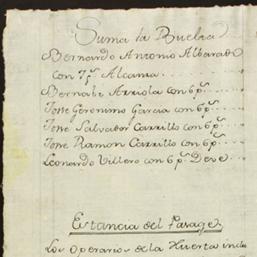 Suma la Buelta
Bernardo Antonio Albarado
con 7ps Alcansa
Bernabe Arriola con 6ps
Jose Geronimo Garcia con 6ps
Jose Salvador Carrillo con 6ps
Jose Ramon Carrillo con 6ps
Leonardo Villero con 6ps Deve
Estancia del Parage
Los Operarios de la Huerta inclu